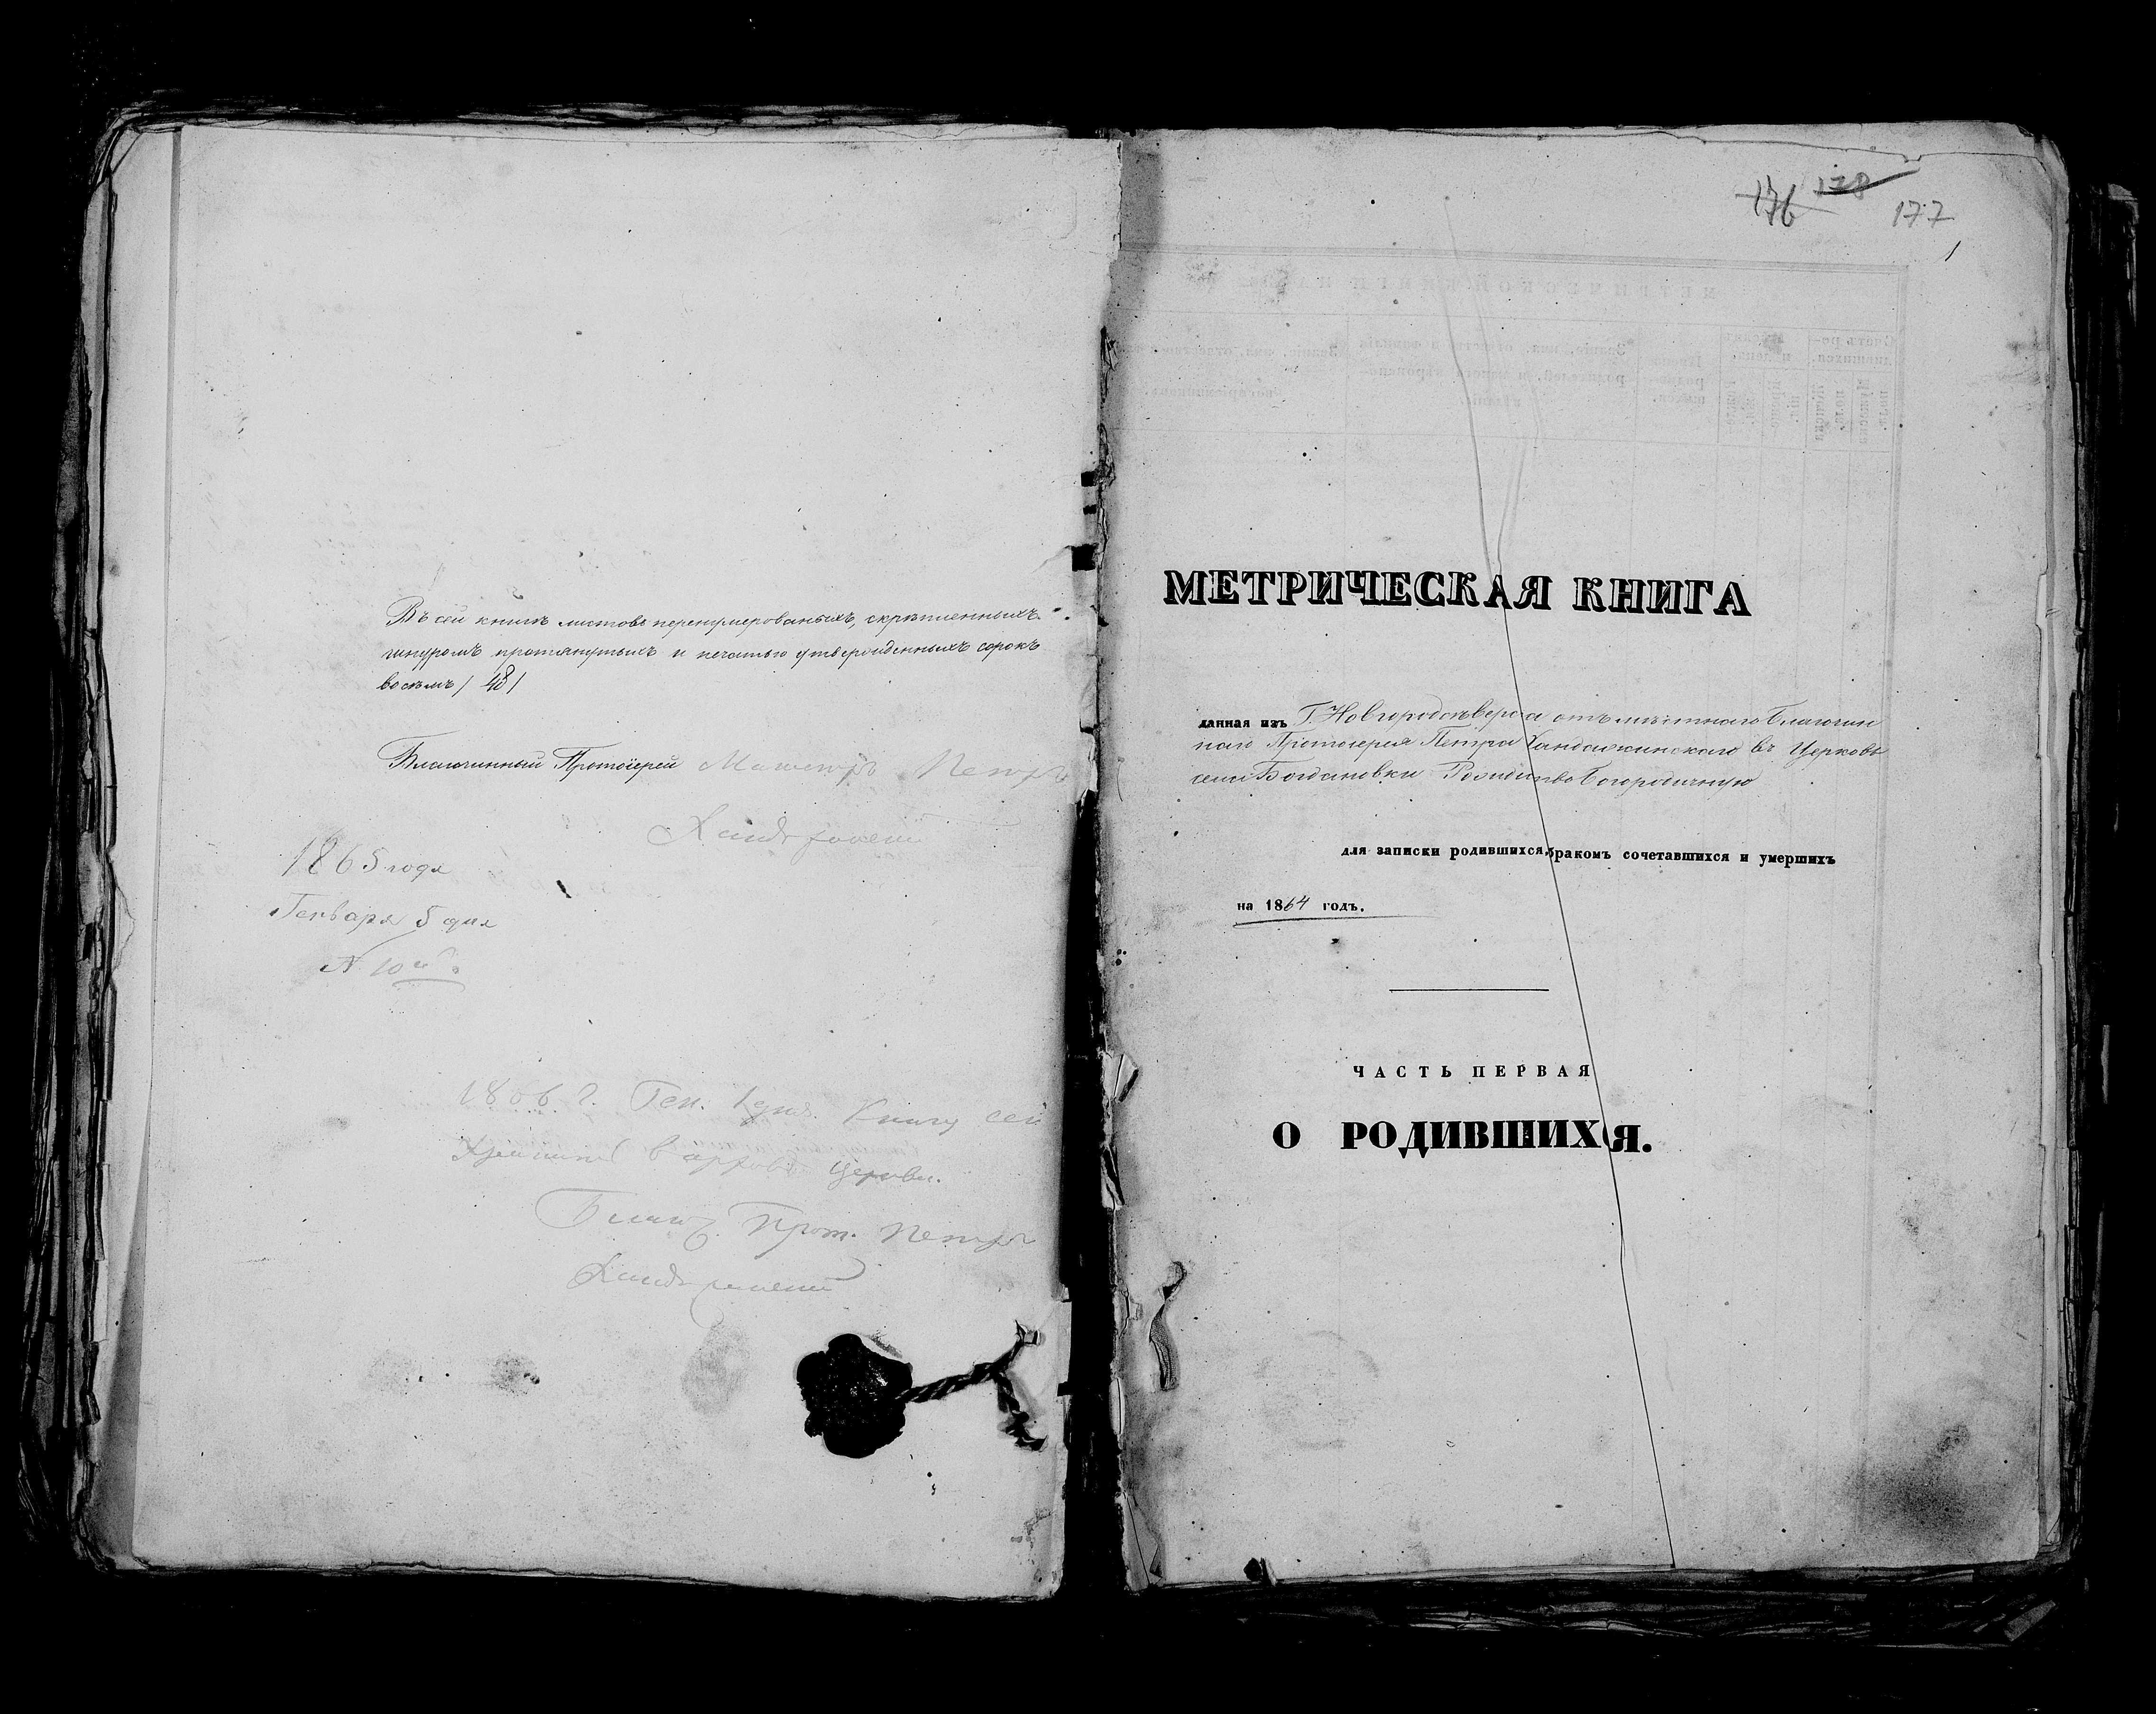 Въ сей книгѣ листовъ перенумерованыхъ, скрѣпленныхъ
шнуромъ протянутыхъ и печатью утвержденныхъ сорокъ
восѣмъ / 48 /
Благочинный Протоіерей Магистръ Петръ
1865 года
Генваря 5 дня
N 10й
1866 г. Ген. 1 дня. Книгу сей
хранить в архивѣ церкви.
Благоч. Прот. Петръ
176 178 177
1
МЕТРИЧЕСКАЯ КНИГА
данная изъ Г. Новгородсѣверска отъ мѣстнаго Благочин
наго Протоіерея Петра Хандожинскаго въ Церковь
села Богдановки Рождество Богородичную
для записки родившихся, бракомъ сочетавшихся и умершихъ
на 1864 годъ.
ЧАСТЬ ПЕРВАЯ
О РОДИВШИХСЯ.